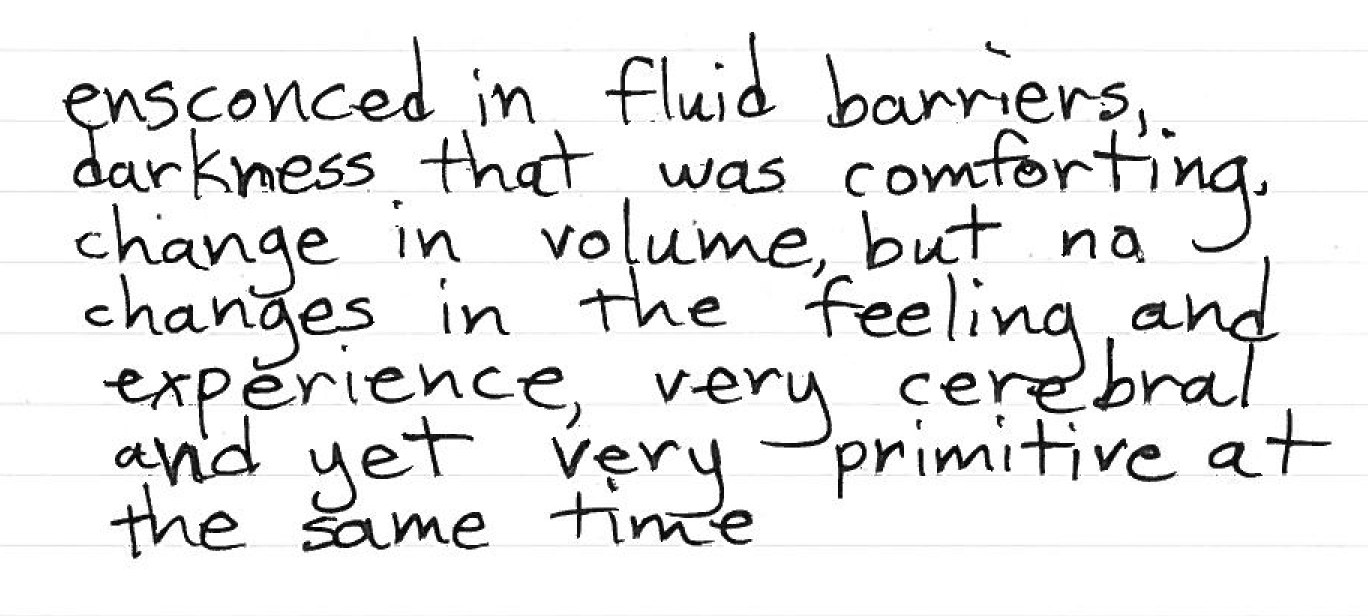 ensconced in fluid barriers,
darkness that was comforting,
change in volume, but no
changes in the feeling and
experience, very cerebral
and yet very primitive at
the same time